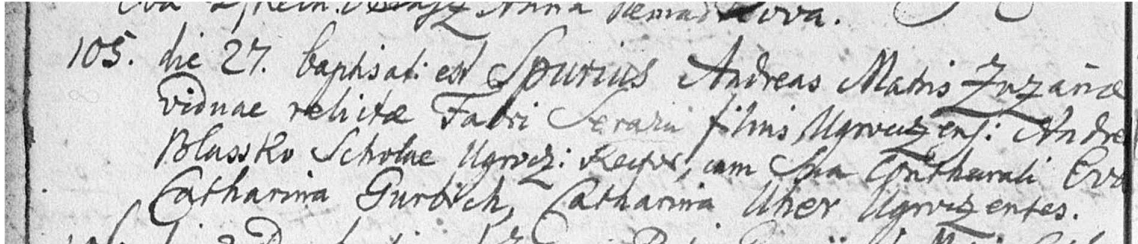 Anna
105. die 27. baptisati est Spurius Andreas Matris Zuzanae
viduae relictae Fabri Serarii filius Ugroczens: Andre
Blassko Scholae Ugrocz: Rector, cum Sua Conthorali Eva
Catharina Gurbich, Catharina Uher Ugroczenses.